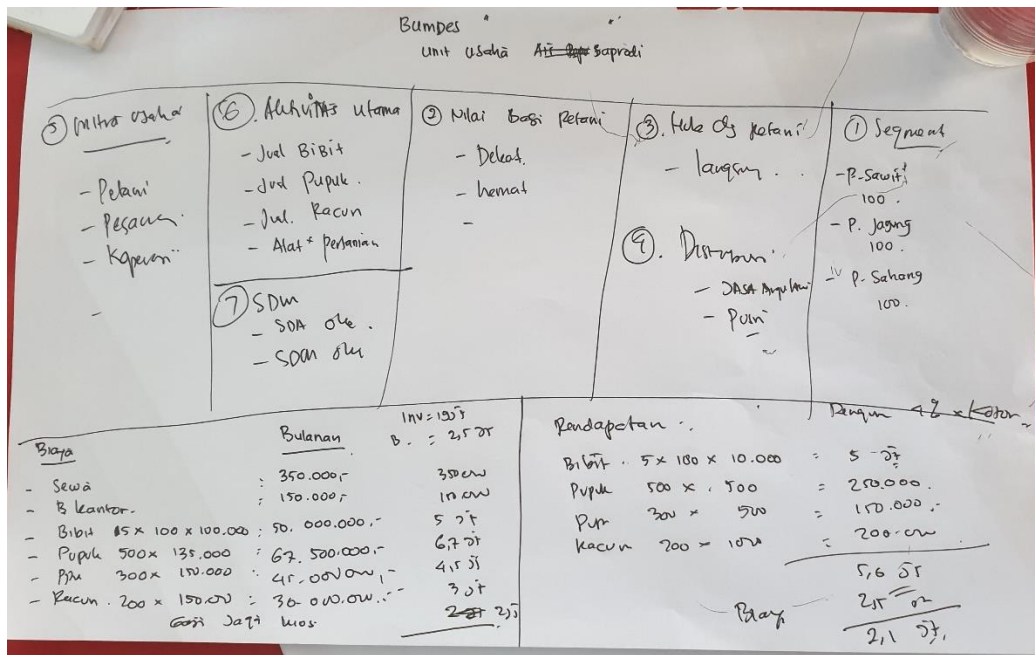 BUMDes " "
unit usaha Saprodi
⑤ mitra usaha
- Petani
- Pesawu
- Koperasi
-
⑥. Aktivitas utama
- Jual BiBit
- Jual Pupuk.
- Jul. Racun
- Alat² Pertanian
⑦ SDM
- SDA oke.
- SDM oke
② Nilai Bagi Petani
- Dekat.
- hemat
-
③. Hub dg petani
- langsung.
④. Distribusi
- JASA Angkutan
-
① Segment
- P. Sawit
100.
- P. Jagung
100.
- P. Sahang
100.
Biaya Bulanan Inv = 195 Jt
B. = 2,5 Jt
- Sewa : 350.000,- 350
- B kantor. : 150.000,-
- Bibit 5 x 100 x 100.000 : 50.000.000,- 5 Jt
- Pupuk 500 x 135.000 : 67.500.000,- 6,7 Jt
- 300 x 150.000 : 45.000.000,- 4,5 Jt
- Racun. 200 x 150.000 = 30.000.000.- 3 Jt
Gaji Jaga kios 2 Jt
Pendapatan :
Bibit. 5 x 100 x 10.000 = 5 Jt
Pupuk 500 x 500 = 250.000.
300 x 500 = 150.000.-
Racun 200 x 1000 = 200.000
5,6 Jt
Biaya 2,5
2,1 Jt.